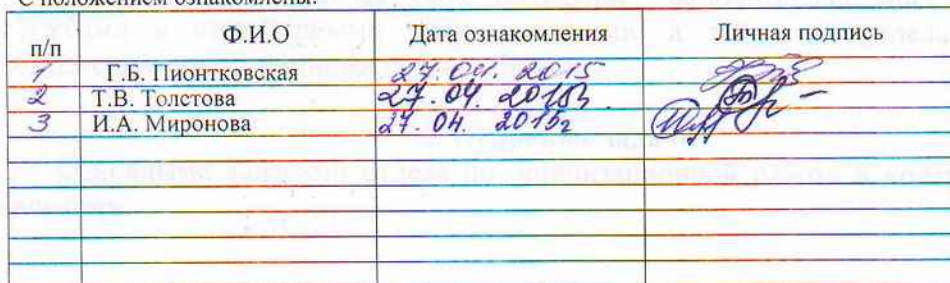 С положением ознакомлены:
п/п Ф.И.О Дата ознакомления Личная подпись
1 Г.Б. Пионтковская 27.04.2015
2 Т.В. Толстова 27.04.2015г.
3 И.А. Миронова 27.04.2015г